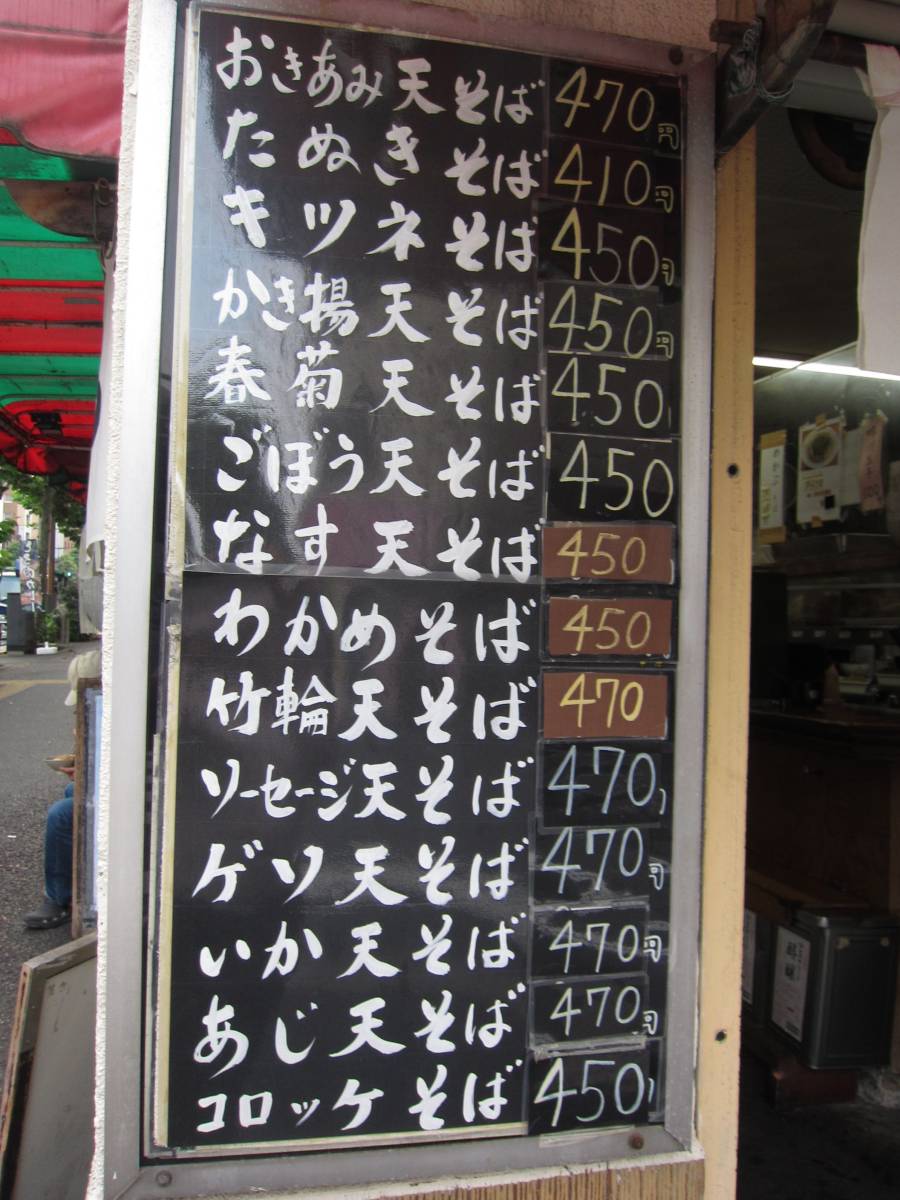 おきあみ天そば 470円
たぬきそば 410円
キツネそば 450円
かき揚天そば 450円
春菊天そば 450
ごぼう天そば 450
なす天そば 450
わかめそば 450
竹輪天そば 470
ソーセージ天そば 470
ゲソ天そば 470円
いか天そば 470円
あじ天そば 470円
コロッケそば 450